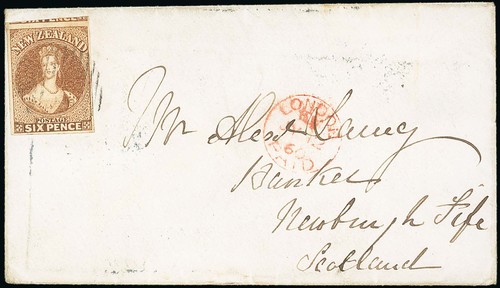 SIX PENCE
NEW ZEALAND
POSTAGE
SIX PENCE
LONDON
60
PAID
Mr Alexr Laing
Banker
Newburgh Fife
Scotland